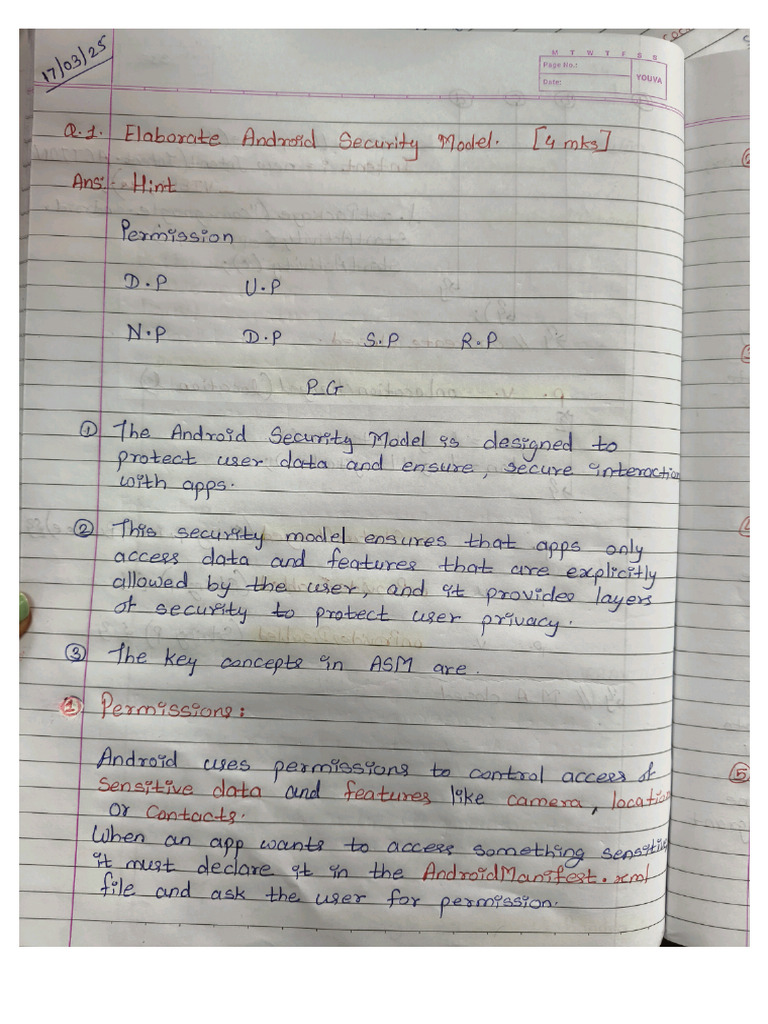 17/03/25
M T W T F S S
Page No.:
Date:
YOUVA
Q.1. Elaborate Android Security Model. [4 mks]
Ans:- Hint
Permission
D.P U.P
N.P D.P S.P R.P
P_G
① The Android Security Model is designed to
protect user data and ensure, secure interaction
with apps.
② This security model ensures that apps only
access data and features that are explicitly
allowed by the user, and it provides layers
of security to protect user privacy.
③ The key concepts in ASM are.
① Permissions:
Android uses permissions to control access of
Sensitive data and features like camera, location
or Contacts.
When an app wants to access something sensitive
it must declare it in the AndroidManifest.xml
file and ask the user for permission.
⑤